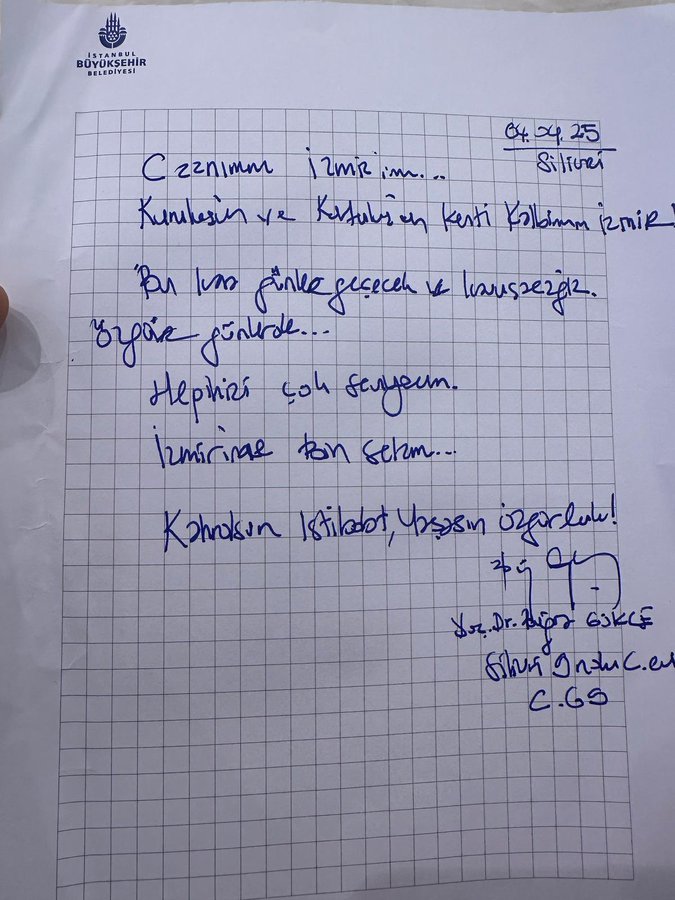 İSTANBUL
BÜYÜKŞEHİR
BELEDİYESİ
04.04.25
Silivri
Caanımm İzmir'im...
Kuruluşun ve Kurtuluşun kenti Kalbimm İzmir!
Bu kara günler geçecek ve kavuşacağız.
Özgür günlerde...
Hepinizi çok seviyorum.
İzmirime bin selam...
Kahrolsun istibdat, Yaşasın özgürlük!
Doç. Dr. Buğra GÖKCE
Silivri 9 nolu C.evi
C.65